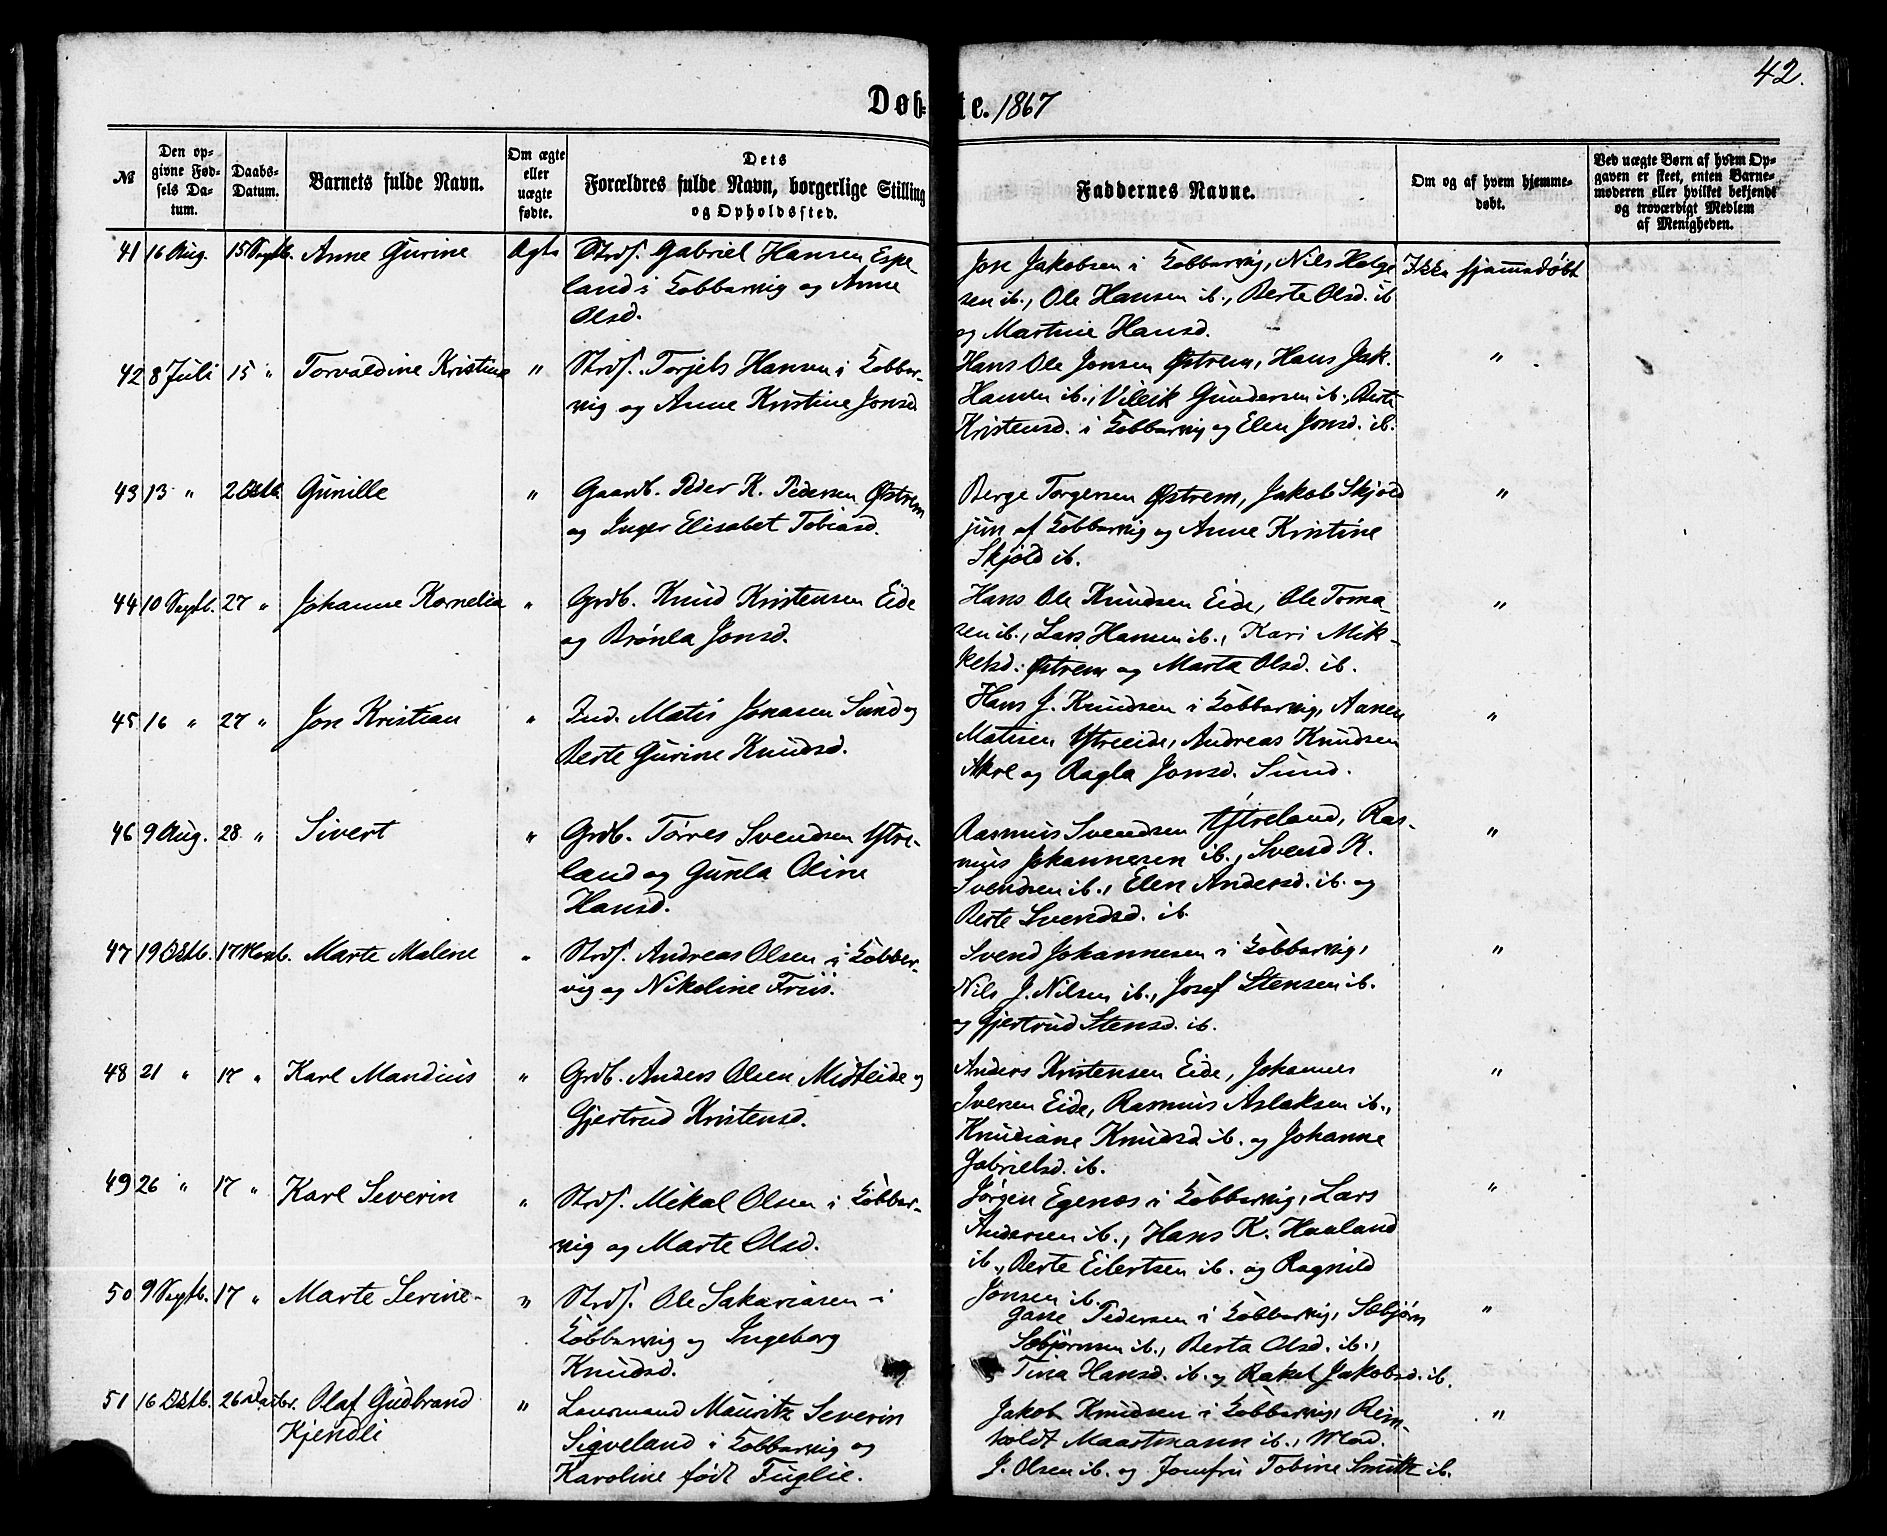 42.
Døbte. 1867
№
Den opgivne Fødsels Datum.
Daabs-Datum.
Barnets fulde Navn.
Om ægte eller uægte fødte.
Dets Forældres fulde Navn, borgerlige Stilling og Opholdssted.
Faddernes Navne.
Om og af hvem hjemmedøbt.
Ved uægte Børn af hvem Opgaven er skeet, enten Barnemoderen eller hvilket bekjendt og troværdigt Medlem af Menigheden.
41 16 Aug. 15 Septb. Anne Gurine Ægte
Strds. Gabriel Hansen Espe-
land i Kobbervig og Anne
Olsd.
Jon Jakobsen i Kobbervig, Nils Helge
sen ib., Ole Hansen ib., Berte Olsd. ib
og Martine Hansd.
Ikke hjemmedøbt
42 8 Juli 15 " Torvaldine Kristine "
Strds. Torjels Hansen i Kobber-
vig og Anne Kristine Jonsd
Hans Ole Jonsen Østrem, Hans Jak.
Hansen ib., Villik Gundersen ib., Berte
Kristensd. i Kobbervig og Elen Jonsd. ib.
"
43 13 " 2 Oktb. Gunille "
Gaardb. Peder K. Pedersen Østrem
og Inger Elisabet Tobiasd.
Berge Torgersen Østrem, Jakob Skjold
jun af Kobbervig og Anne Kristine
Skjold ib.
"
44 10 Septb. 27 " Johanne Kornelia "
Grdb. Knud Kristensen Eide
og Brønla Jonsd.
Hans Ole Knudsen Eide, Ole Toma-
sen ib., Lars Hansen ib., Kari Mik-
kelsd. Østrem og Marta Olsd. ib.
"
45 16 " 27 " Jon Kristian "
Ind. Matis Jonasen Sund og
Berte Gurine Knudsd.
Hans J. Knudsen i Kobbervig, Aanen
Matisen Ytreeide, Andreas Knudsen
Akre og Ragla Jonsd. Sund.
"
46 9 Aug. 28 " Sivert "
Grdb. Tørres Svendsen Ytre-
land og Gunla Oline
Hansd.
Rasmus Svendsen Ytreland, Ras-
mus Johannesen ib., Svend K.
Svendsen ib., Elen Andersd. ib. og
Berte Svendsd. ib.
"
47 19 Oktb. 17 Novb. Marte Malene "
Strds. Andreas Olsen i Kobber-
vig og Nikoline Friis.
Svend Johannesen i Kobbervig,
Nils J. Nilsen ib., Josef Stensen ib.
og Gjertrud Stensd. ib.
"
48 21 " 17 " Karl Mandius "
Grdb. Anders Olsen Midteide og
Gjertrud Kristensd.
Anders Kristensen Eide, Johannes
Iversen Eide, Rasmus Aslaksen ib.,
Knudiane Knudsd. ib. og Johanne
Gabrielsd. ib.
"
49 26 " 17 " Karl Severin "
Strds. Mikal Olsen i Kobber-
vig og Marte Olsd.
Jørgen Egenæs i Kobbervig, Lars
Andersen ib., Hans K. Haaland
ib., Berte Eilertsen ib. og Ragnild
Jonsen ib.
"
50 9 Septb. 17 " Marte Serine "
Strds. Ole Sakariasen i
Kobbervig og Ingeborg
Knudsd.
Gasse Pedersen i Kobbervig, Sæbjørn
Sæbjørnsen ib., Berta Olsd. ib.,
Tina Hansd. ib. og Rakel Jakobsd. ib.
"
51 16 Oktb. 26 Decbr. Olaf Gudbrand
Kjendli "
Lensmand Mauritz Severin
Sigveland i Kobbervig og
Karoline født Fuglie.
Jakob Knudsen i Kobbervig, Rein-
holdt Maartmann ib., Mad.
J. Olsen ib. og Jomfru Tobine Smith ib.
"